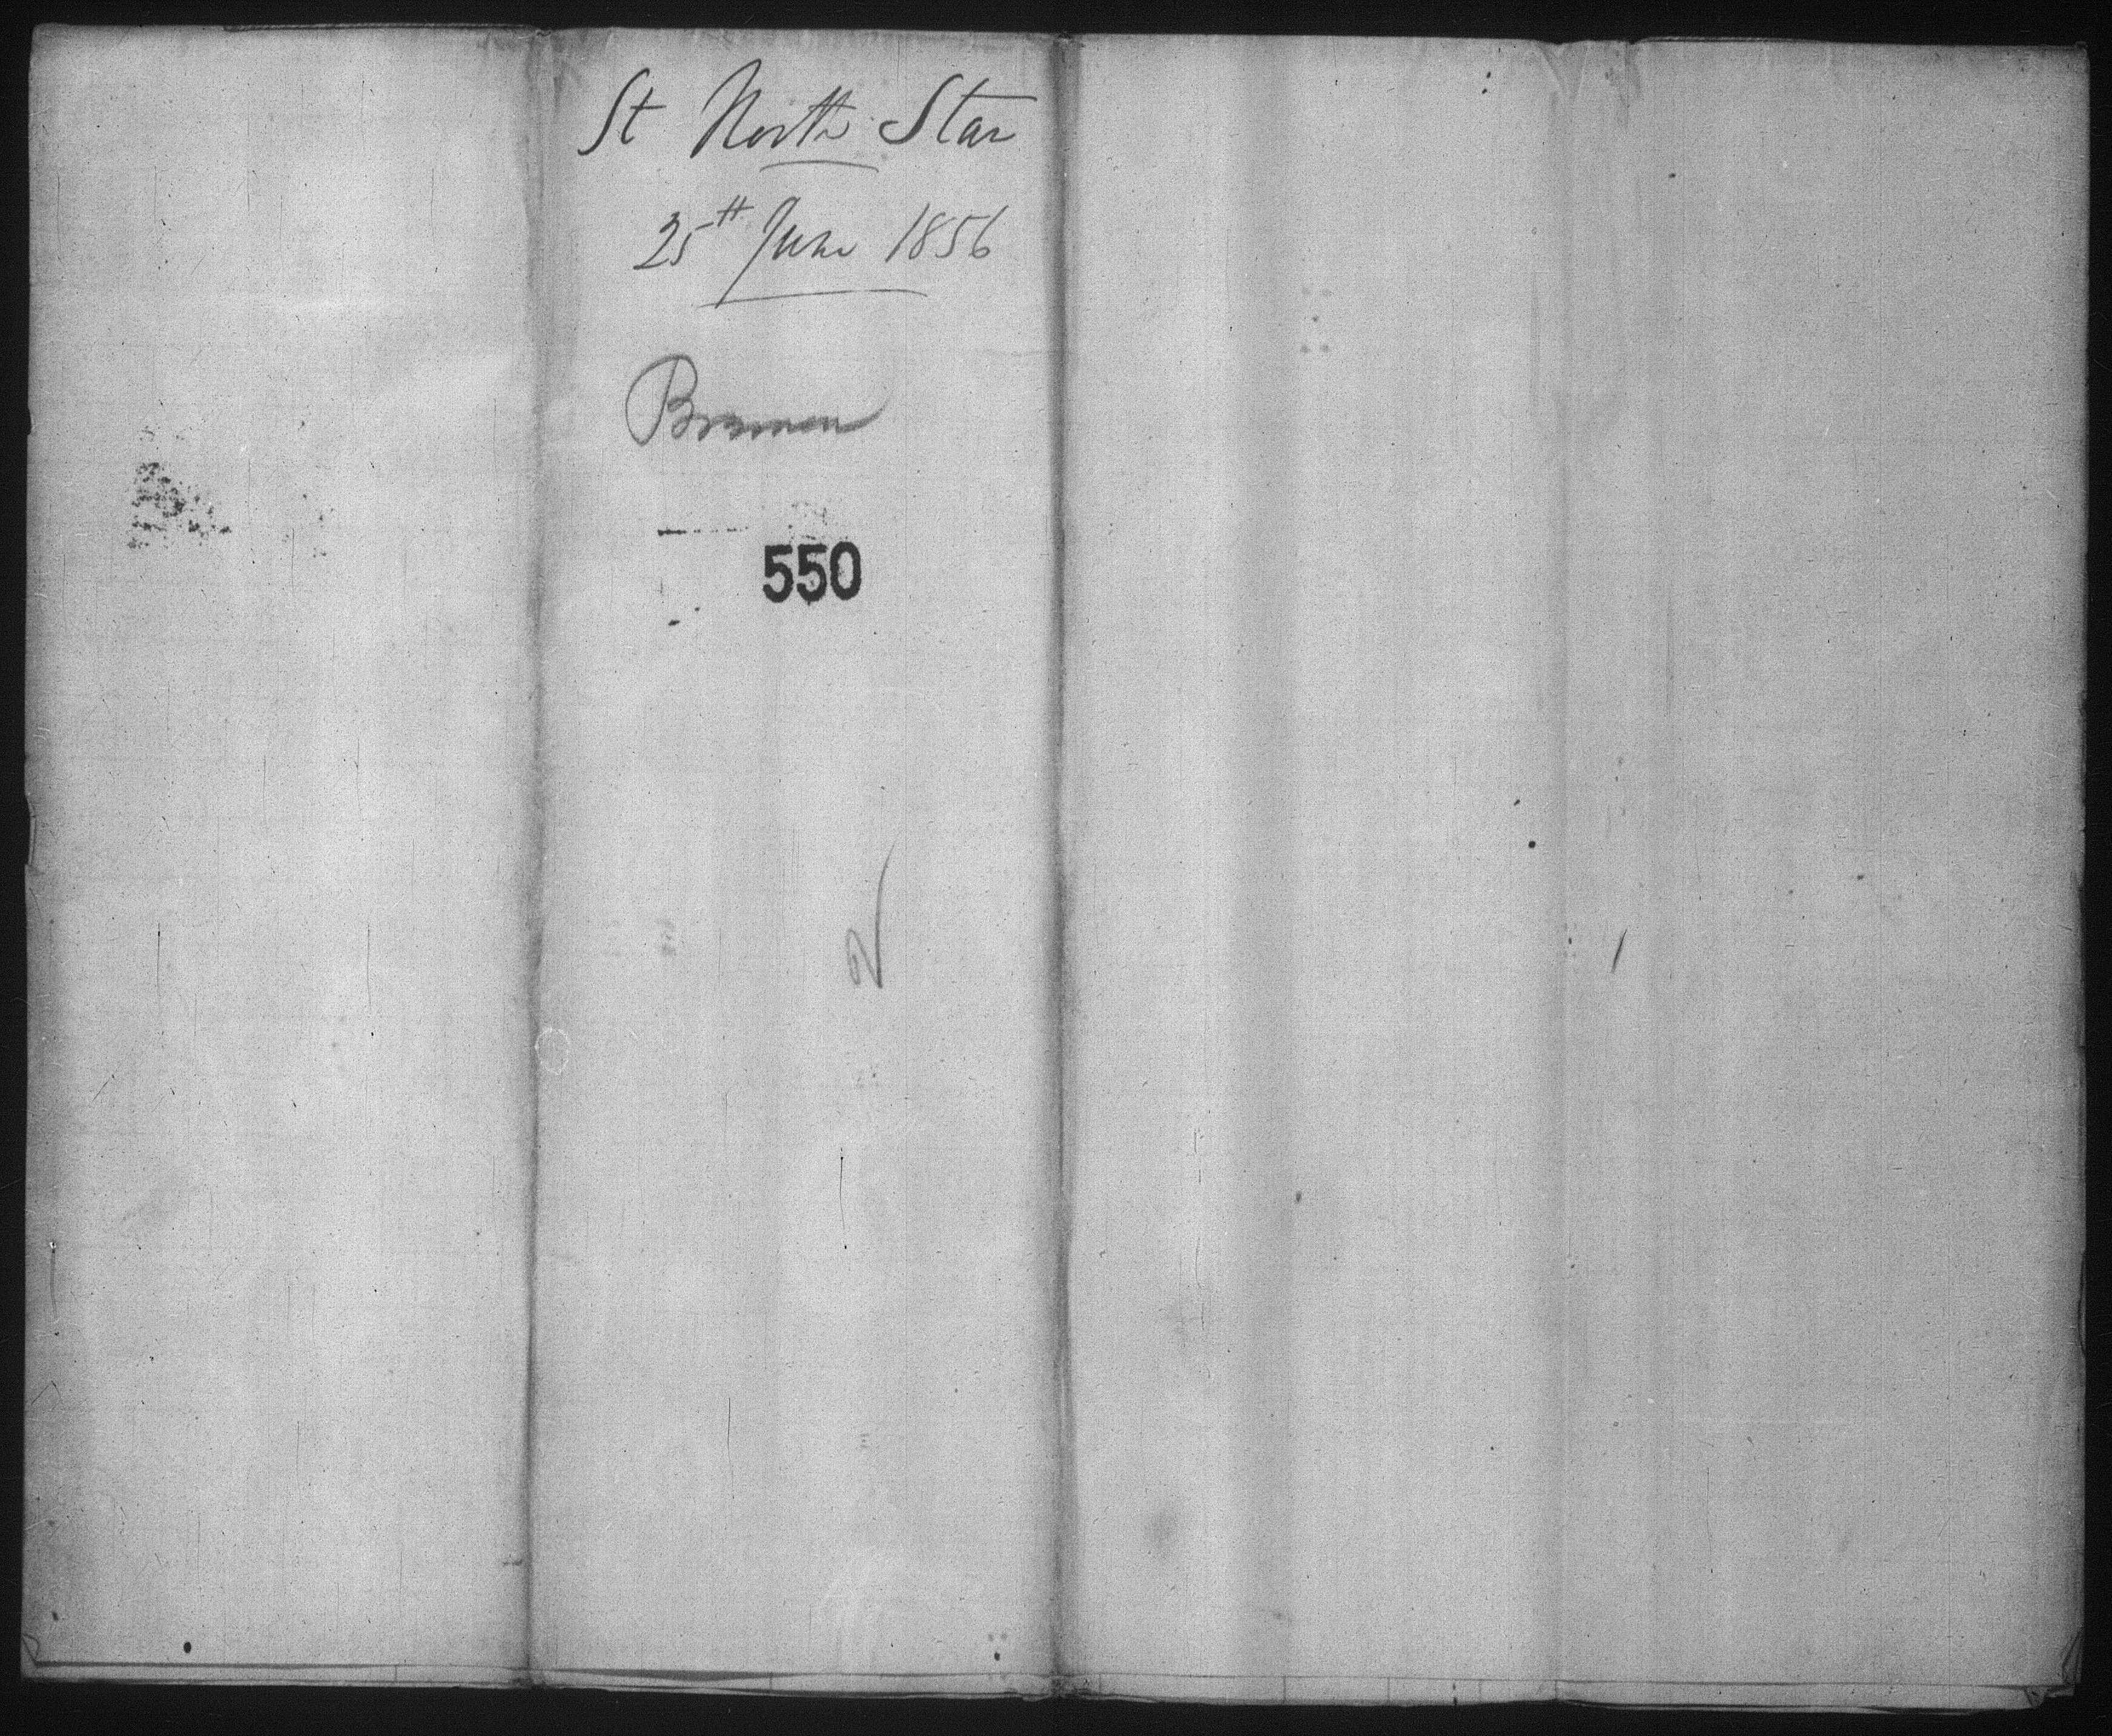 St North Star
25th June 1856
Bremen
550